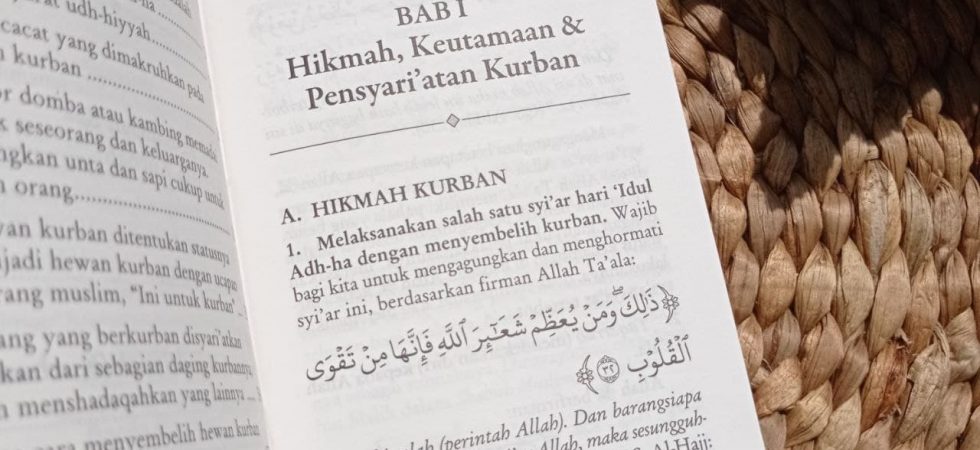 udh-hiyyah
cacat yang dimakruhkan pada
kurban
domba atau kambing memadai
seseorang dan keluarganya.
ngkan unta dan sapi cukup untuk
orang
kurban ditentukan statusnya
jadi hewan kurban dengan ucapan
rang muslim, “Ini untuk kurban”
ang yang berkurban disyari’atkan
kan dari sebagian daging kurbannya
menshadaqahkan yang lainnya
menyembelih hewan kurban
BAB I
Hikmah, Keutamaan &
Pensyari’atan Kurban
A. HIKMAH KURBAN
1. Melaksanakan salah satu syi’ar hari ‘Idul
Adh-ha dengan menyembelih kurban. Wajib
bagi kita untuk mengagungkan dan menghormati
syi’ar ini, berdasarkan firman Allah Ta’ala:
﴿ذَٰلِكَۖ وَمَن يُعَظِّمۡ شَعَٰٓئِرَ ٱللَّهِ فَإِنَّهَا مِن تَقۡوَى
ٱلۡقُلُوبِ ٣٢﴾
(perintah Allah). Dan barangsiapa
Allah, maka sesungguh-
Al-Hajj: